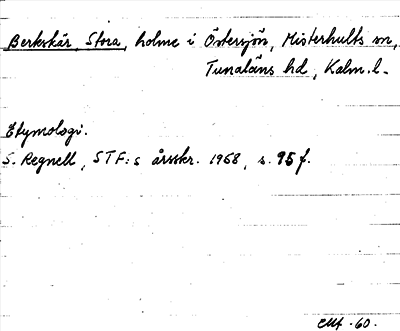 Berkskär, Stora, holme i Östersjön, Misterhults sn,
Tunaläns hd, Kalm. l.
Etymologi.
S. Regnell, STF:s årsskr. 1968, s. 95 f.
60.